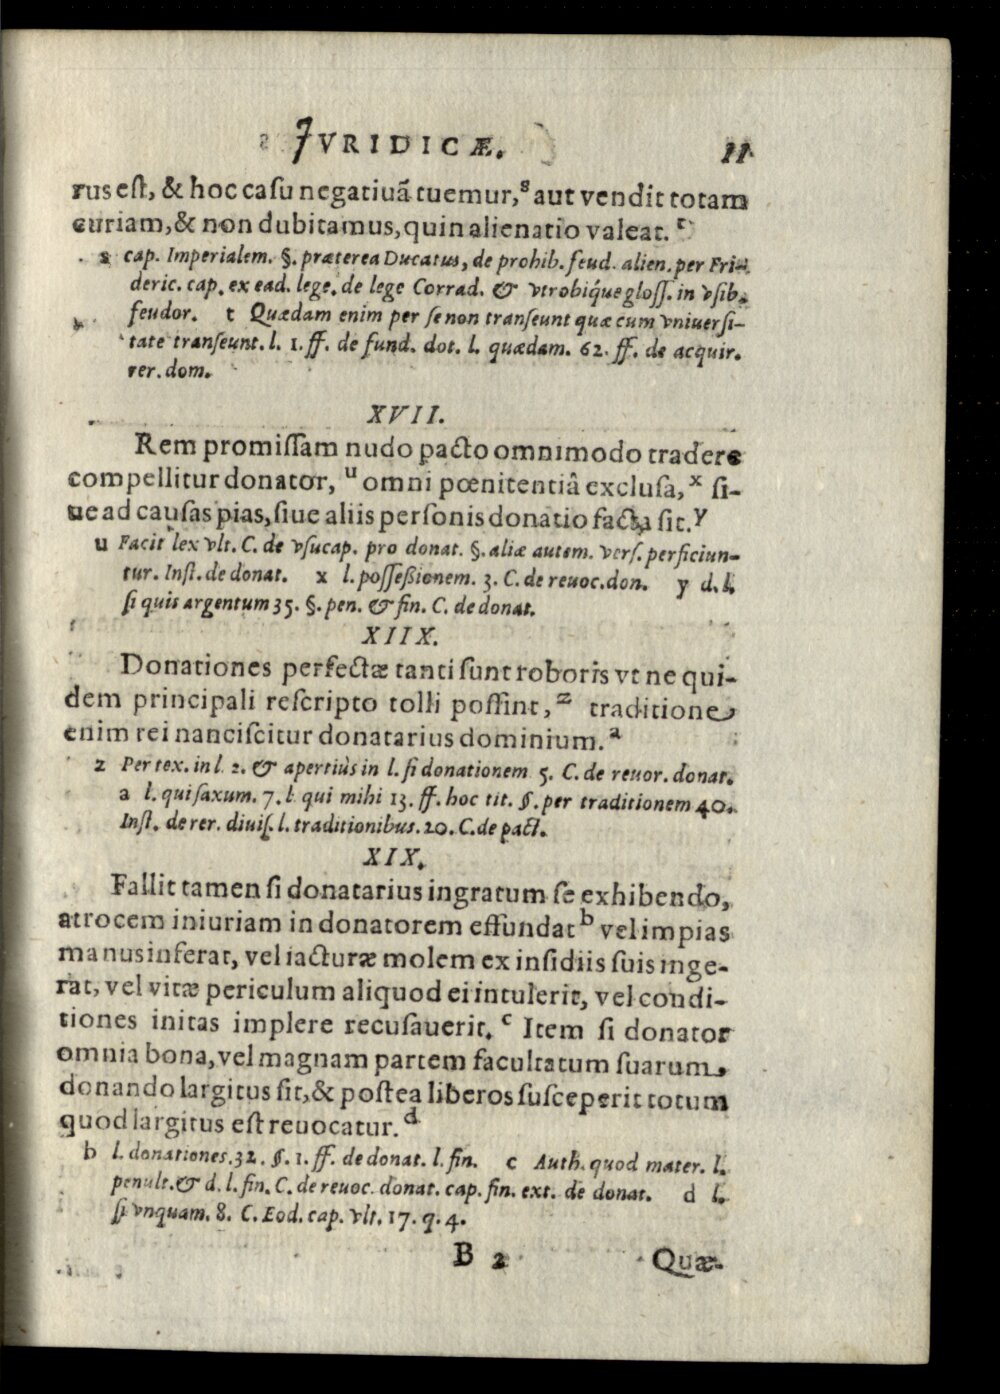 JVRIDICÆ. 11
rus est, & hoc casu negatiuã tuemur,ˢ aut vendit totam
curiam, & non dubitamus, quin alienatio valeat.ᵗ
s cap. Imperialem. §. præterea Ducatus, de prohib. feud. alien. per Fri-
deric. cap. ex ead. lege. de lege Corrad. & vtrobiq́ue gloss. in vsib.
feudor. t Quædam enim per se non transeunt quæ cum vniuersi-
tate transeunt. l. 1. ff. de fund. dot. l. quædam. 62. ff. de acquir.
rer. dom.
XVII.
Rem promissam nudo pacto omnimodo tradere
compellitur donator, ᵘ omni pœnitentiâ exclusa, ˣ si-
ue ad causas pias, siue aliis personis donatio facta sit.ʸ
u Facit lex vlt. C. de vsucap. pro donat. §. aliæ autem. vers. perficiun-
tur. Inst. de donat. x l. possessionem. 3. C. de reuoc. don. y d. l.
si quis argentum 35. §. pen. & fin. C. de donat.
XIIX.
Donationes perfectæ tanti sunt roboris vt ne qui-
dem principali rescripto tolli possint, ᶻ traditione
enim rei nanciscitur donatarius dominium.ᵃ
z Per tex. in l. 2. & apertiùs in l. si donationem 5. C. de reuor. donat.
a l. qui saxum. 7. l. qui mihi 13. ff. hoc tit. §. per traditionem 40.
Inst. de rer. diuis. l. traditionibus. 20. C. de pact.
XIX.
Fallit tamen si donatarius ingratum se exhibendo,
atrocem iniuriam in donatorem effundatᵇ vel impias
manus inferat, vel iacturæ molem ex insidiis suis inge-
rat, vel vitæ periculum aliquod ei intulerit, vel condi-
tiones initas implere recusauerit.ᶜ Item si donator
omnia bona, vel magnam partem facultatum suarum
donando largitus sit, & postea liberos susceperit totum
quod largitus est reuocatur.ᵈ
b l. donationes. 32. §. 1. ff. de donat. l. fin. c Auth. quod mater. l.
penult. & d. l. fin. C. de reuoc. donat. cap. fin. ext. de donat. d l.
si vnquam. 8. C. Eod. cap. vlt. 17. q. 4.
B 2 Quæ-